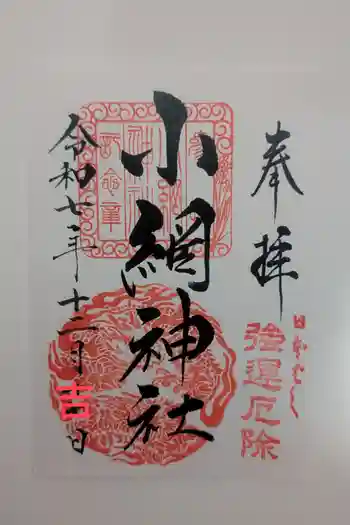 奉拝
日本ばし
強運厄除
小網神社
令和七年十二月吉日